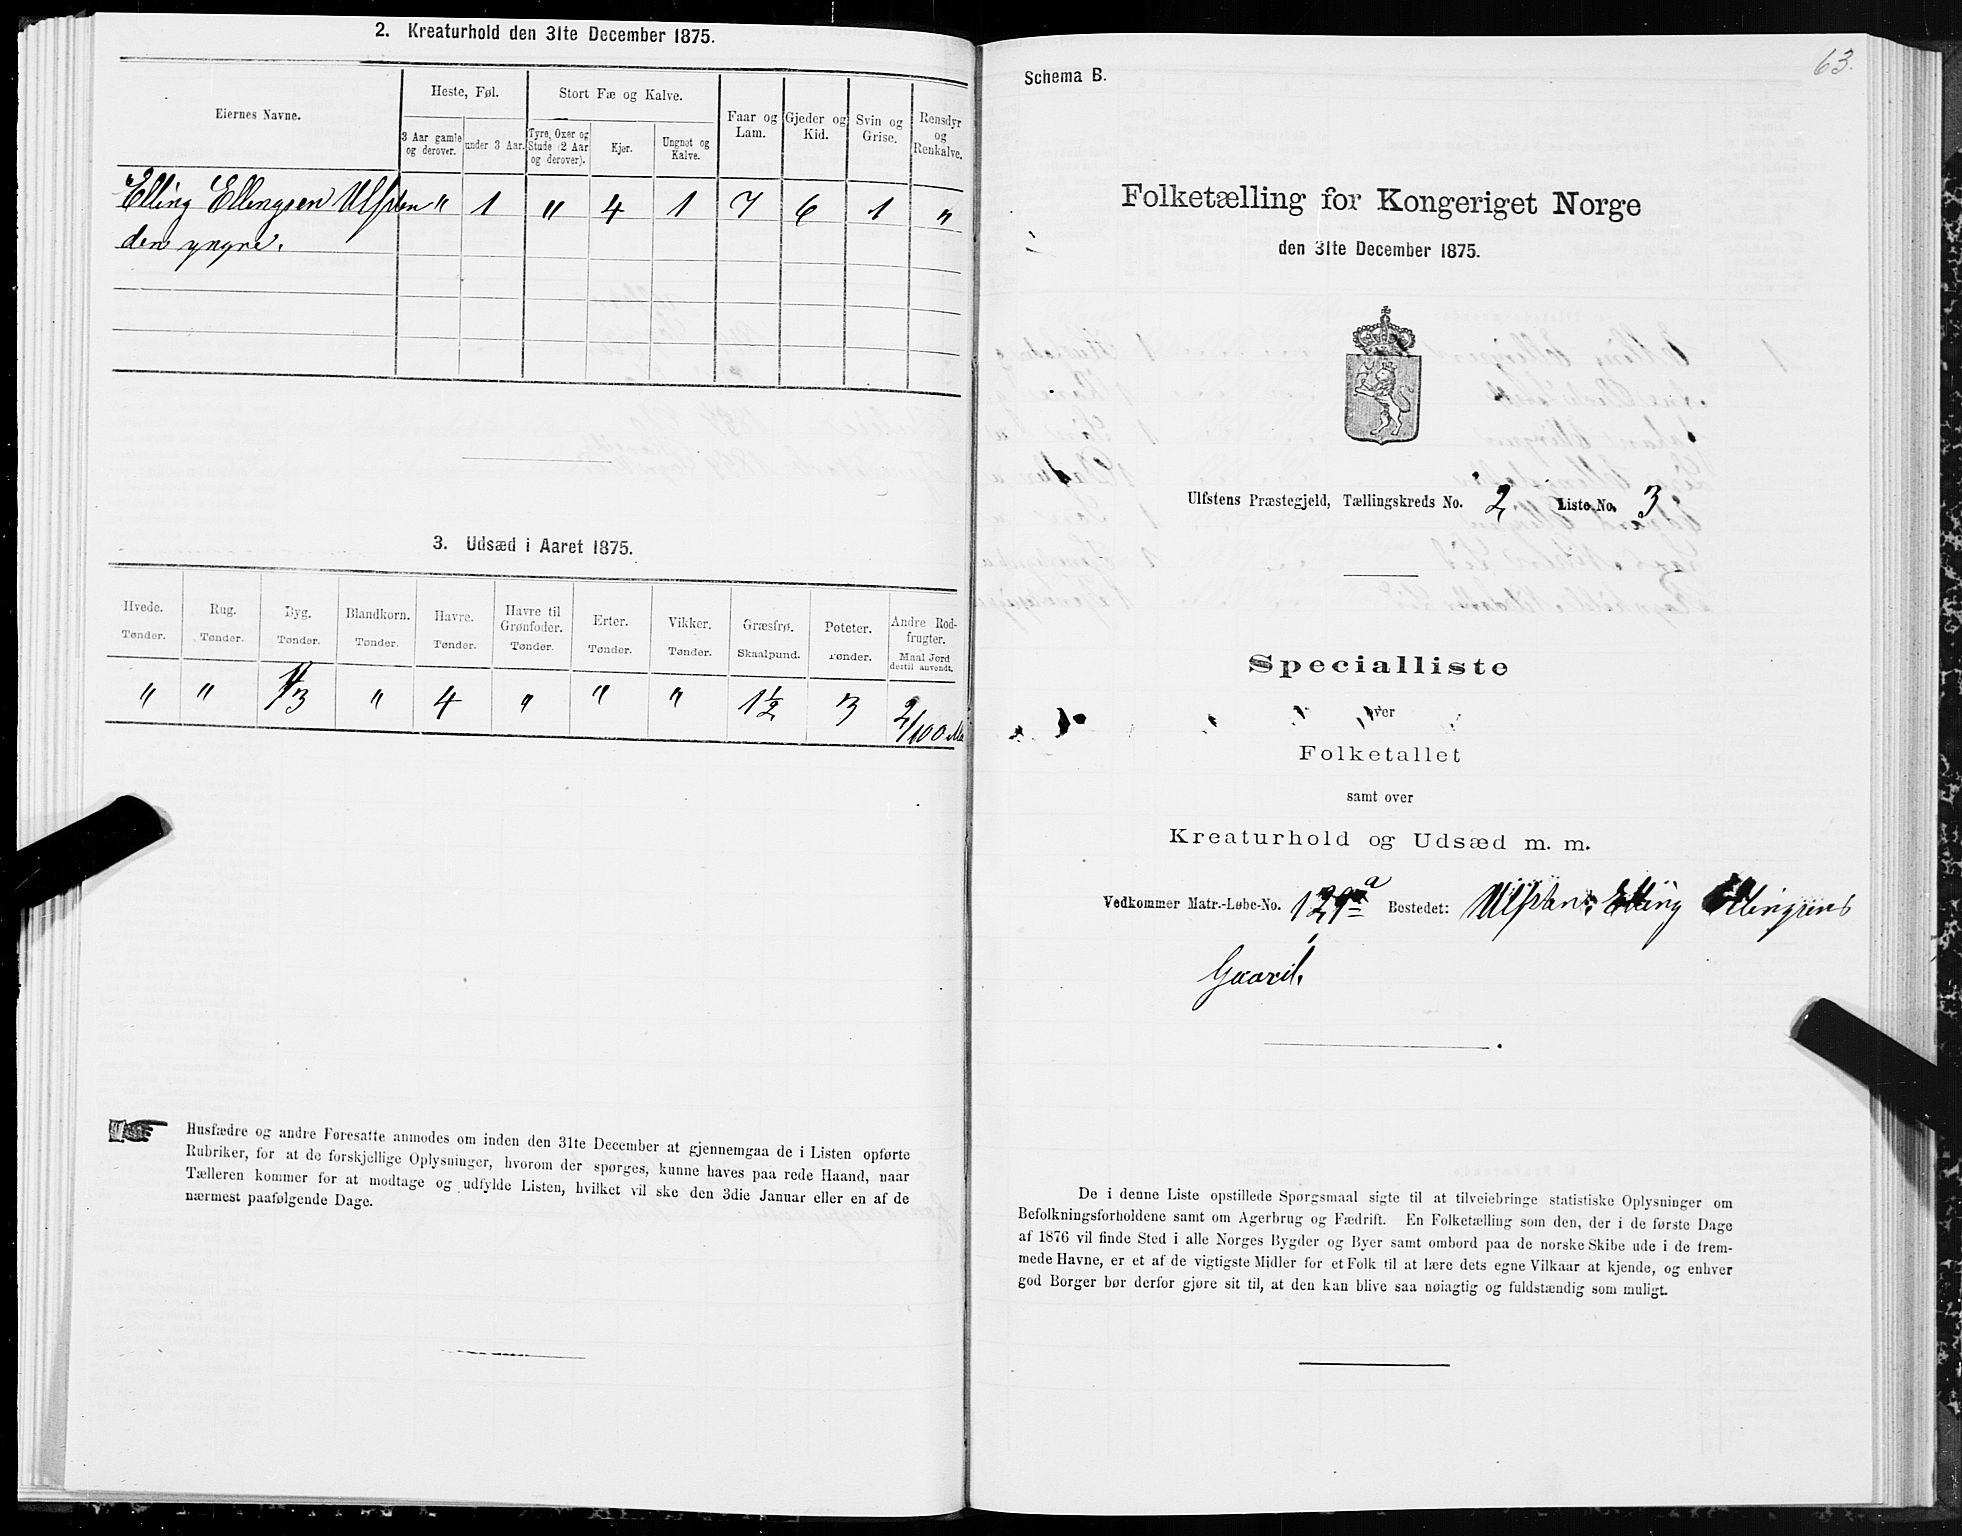 2. Kreaturhold den 31te December 1875.
Eiernes Navne.
Heste, Føl.
Stort Fæ og Kalve.
Faar og Lam.
Gjeder og Kid.
Svin og Grise.
Rensdyr og Renkalve.
3 Aar gamle og derover.
under 3 Aar.
Tyre, Oxer og Stude (2 Aar og derover).
Kjer.
Ungnøt og Kalve.
Elling Ellingsen Ulsten " 1 " 4 1 7 6 1 "
den yngre.
3. Udsæd i Aaret 1875.
Hvede. Rug. Byg. Blandkorn. Havre. Havre til Grønfoder. Erter. Vikker. Græsfrø. Poteter. Andre Rodfrugter.
Tønder. Tønder. Tønder. Tønder. Tønder. Tønder. Tønder. Tønder. Skaalpund. Tønder. Maal Jord dertil anvendt.
" " 1/3 " 4 " " " 1½ 3 2/100
Husfædre og andre Foresatte anmodes om inden den 31te December at gjennemgaa de i Listen opførte
Rubriker, for at de forskjellige Oplysninger, hvorom der spørges, kunne haves paa rede Haand, naar
Tælleren kommer for at modtage og udfylde Listen, hvilket vil ske den 3die Januar eller en af de
nærmest paafølgende Dage.
63.
Schema B.
Folketælling for Kongeriget Norge
den 31te December 1875.
Ulfstens Præstegjeld, Tællingskreds No. 2 Liste No. 3
Specialliste
over
Folketallet
samt over
Kreaturhold og Udsæd m. m.
Vedkommer Matr.-Løbe-No. 129a Bostedet: Ulsten, Elling Ellingsens
Gaard.
De i denne Liste opstillede Spørgsmaal sigte til at tilveiebringe statistiske Oplysninger om
Befolkningsforholdene samt om Agerbrug og Fædrift. En Folketælling som den, der i de første Dage
af 1876 vil finde Sted i alle Norges Bygder og Byer samt ombord paa de norske Skibe ude i de frem-
mede Havne, er et af de vigtigste Midler for et Folk til at lære dets egne Vilkaar at kjende, og enhver
god Borger bør derfor gjøre sit til, at den kan blive saa nøiagtig og fuldstændig som muligt.